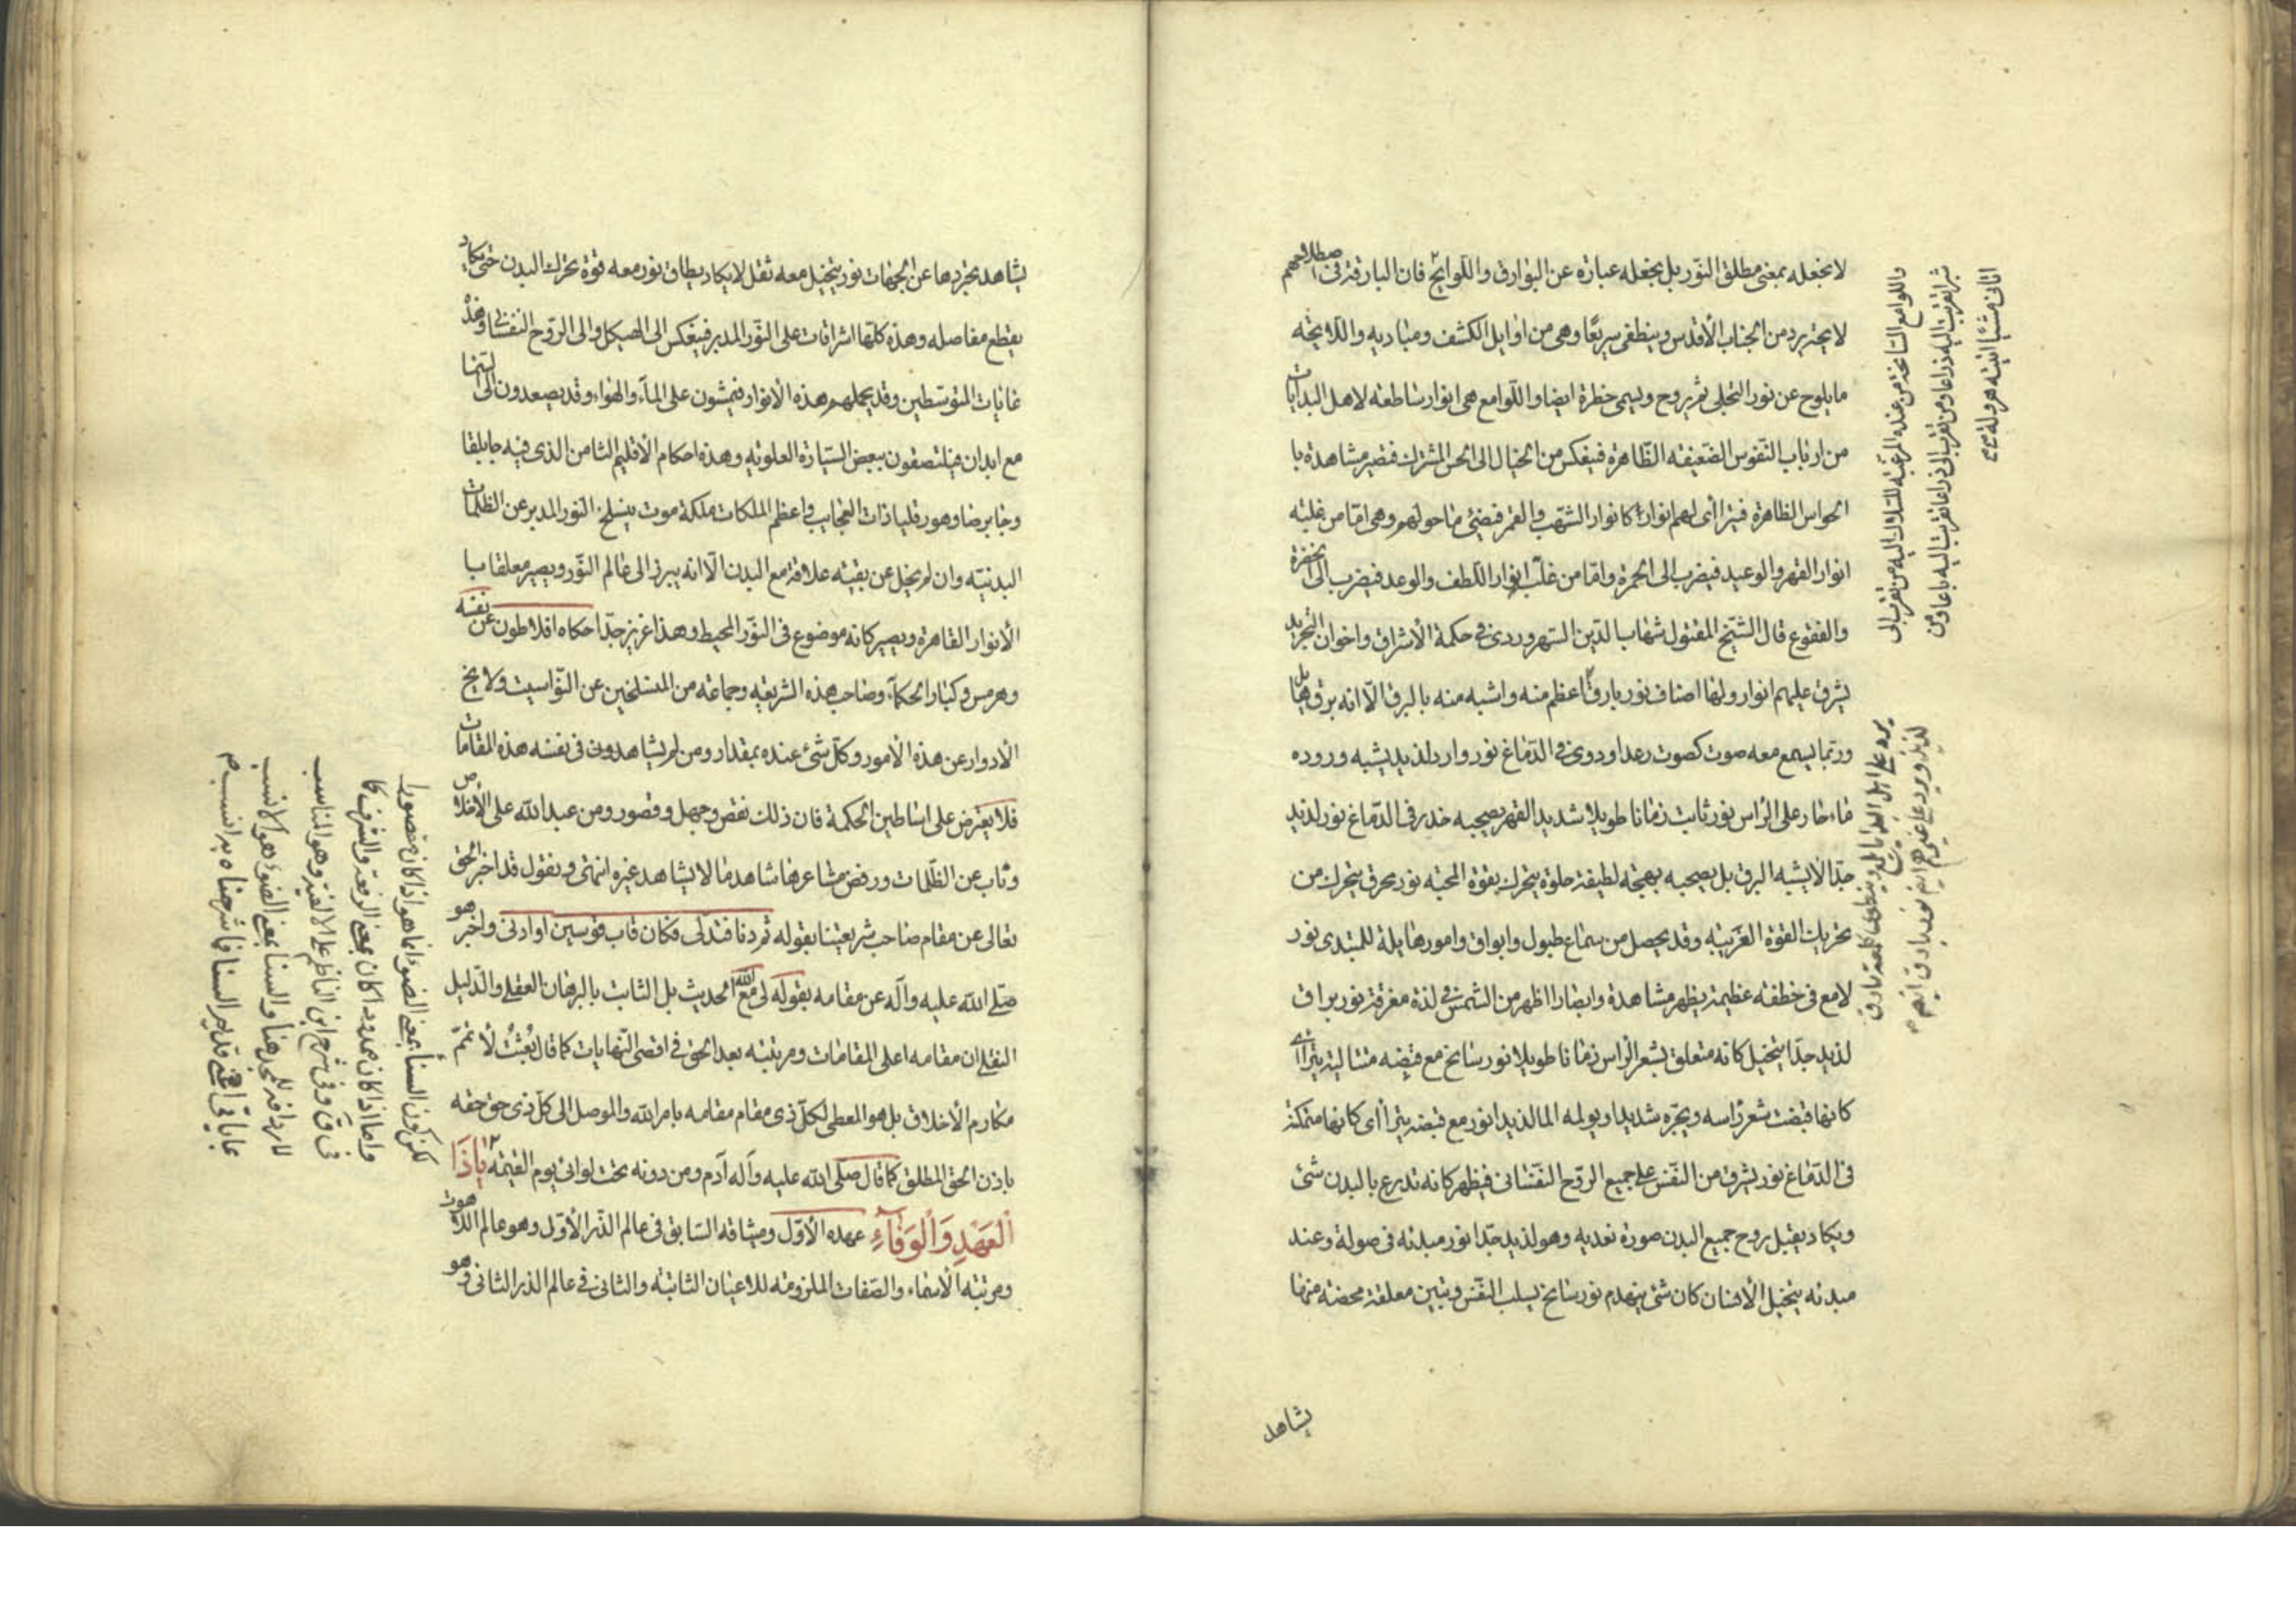 لا يجعله بمعنى مطلق النّور بل يجعله عبارة عن البوارق واللّوايح فان البارقة فى اصطلاحهم
لايحة يرد من الجناب الاقدس وينطفى سريعًا وهى من اوايل الكشف ومباديه واللايحة
ما يلوح عن نور التجلى ثم يروح ويسمى خطرة ايضا واللّوامع هى انوار ساطعة لاهل البدايات
من ارباب النّفوس الضعيفة الظّاهرة فينعكس من الخيال الى الحس المشترك فتصير مشاهدة با
الحواس الظاهرة فيترااى لهم انوار كانوار الشّهب والقمر فيضئ ما حولهم وهى امّا من غلبة
انوار القهر والوعيد فيضرب الى الحمرة وامّا من غلب انوار اللّطف والوعد فيضرب الى الخضرة
والفقوع قال الشّيخ المقتول شهاب الدّين السّهروردى فى حكمة الاشراق واخوان التجريد
يشرق عليهم انوار ولها اصناف نور بارق اعظم منه واشبه منه بالبرق الّا انه برق هايل
وربّما يسمع معه صوت كصوت رعد او دوى فى الدّماغ نور وارد لذيد يشبه وروده
ماء حار على الرّاس نور ثابت زمانا طويلا شديد القهر يصحبه خدر فى الدّماغ نور لذيد
جدّا لا يشبه البرق بل يصحبه بهجة لطيفة حلوة يتحرك بقوة المحبة نور محرق يتحرك من
تحريك القوة الغريبة وقد يحصل من سماع طبول وابواق وامور هايلة للمبتدى نور
لامع فى خطفة عظيمة يظهر مشاهدة وابصارا اظهر من الشّمس فى لذة مغرقة نور براق
لذيد جدّا يتخيل كانه متعلق بشعر الرّاس زمانا طويلا نور سانح مع قبضه مثالية يترااى
كانها قبضت شعر راسه ويجرّه شديدا ويولمه الما لذيدا نور مع قبضة يترااى كانها متمكنة
فى الدّماغ نور يشرق من النّفس على جميع الرّوح النّفسانى فيظهر كانه تدرع بالبدن شئ
ويكاد يقبل روح جميع البدن صورة نورية وهو لذيد جدّا نور مبدئه فى صولة وعند
مبدئه يتخيل الانسان كان شئ ينهدم نور سانح يسلب النّفس وتبين معلقة محضة منها
يشاهد
واللوامع السانحة من عنده
شبرا تقربت اليه ذراعا ومن تقرب الى ذراعا تقربت اليه باعا ومن
اتانى مشيًا اتيته هرولة
يشاهد تجردها عن الجهات نور يتخيل معه ثقل لا يكاد يطاق نور معه قوة تحرك البدن حتى يكاد
يقطع مفاصله وهذه كلّها اشراقات على النّور المدبر فينعكس الى الهيكل والى الرّوح النفسانى وهذه
غايات المتوسّطين وقد يحملهم هذه الانوار فيمشون على المآء والهواء وقد يصعدون الى السّما
مع ابدان فيلتصقون ببعض السّيارة العلوية وهذه احكام الاقليم الثامن الذى فيه جابلقا
وجابرصا وهورقليا ذات العجايب واعظم الملكات ملكة موت ينسلخ النّور المدبر عن الظلمات
البدنيّة وان لم يخل عن بقيّة علاقة مع البدن الّا انه يبرز الى عالم النّور ويصير معلقا با
الانوار القاهرة ويصير كانه موضوع فى النّور المحيط وهذا عزيز جدّا حكاه افلاطون عن نفسه
وهرمس وكبار الحكمآء وصاحب هذه الشريعة وجماعة من المنسلخين عن النّواسيت ولا يخ
الادوار عن هذه الامور وكلّ شئ عنده بمقدار ومن لم يشاهدون فى نفسه هذه المقامات
فلا يعترض على اساطين الحكمة فان ذلك نقص وجهل وقصور ومن عبد الله على الاخلاص
وتاب عن الظّلمات ورفض مشاعرها شاهد ما لا يشاهد غيره انتهى ونقول قد اخبر الحق
تعالى عن مقام صاحب شريعتنا بقوله ثم دنا فتدلّى فكان قاب قوسين او ادنى واخبر هو
صلّى الله عليه وآله عن مقامه بقوله لى مع الله الحديث بل الثابت بالبرهان العقلى والدّليل
النقلى ان مقامه اعلى المقامات ومرتبته بعد الحق فى اقصى النّهايات كما قال بُعِثْتُ لأتمّم
مكارم الاخلاق بل هو المعطى لكلّ ذى مقام مقامه بامر الله والموصل الى كلّ ذى حق حقه
باذن الحق المطلق كما قال صلّى الله عليه وآله آدم ومن دونه تحت لوائى يوم القيمة يَا ذَا
الْعَهْدِ وَالْوَفَآءِ عهده الاوّل وميثاقه السّابق فى عالم الذّر الاوّل وهو عالم اللّاهوت
ومرتبة الاسماء والصّفات الملزومة للاعيان الثابتة والثانى فى عالم الذر الثانى وهو
لكن كون السنا بمعنى الضوء انما هو اذا كان مقصورا
واما اذا كان ممدودا كان بمعنى الرفعة والشرف كما